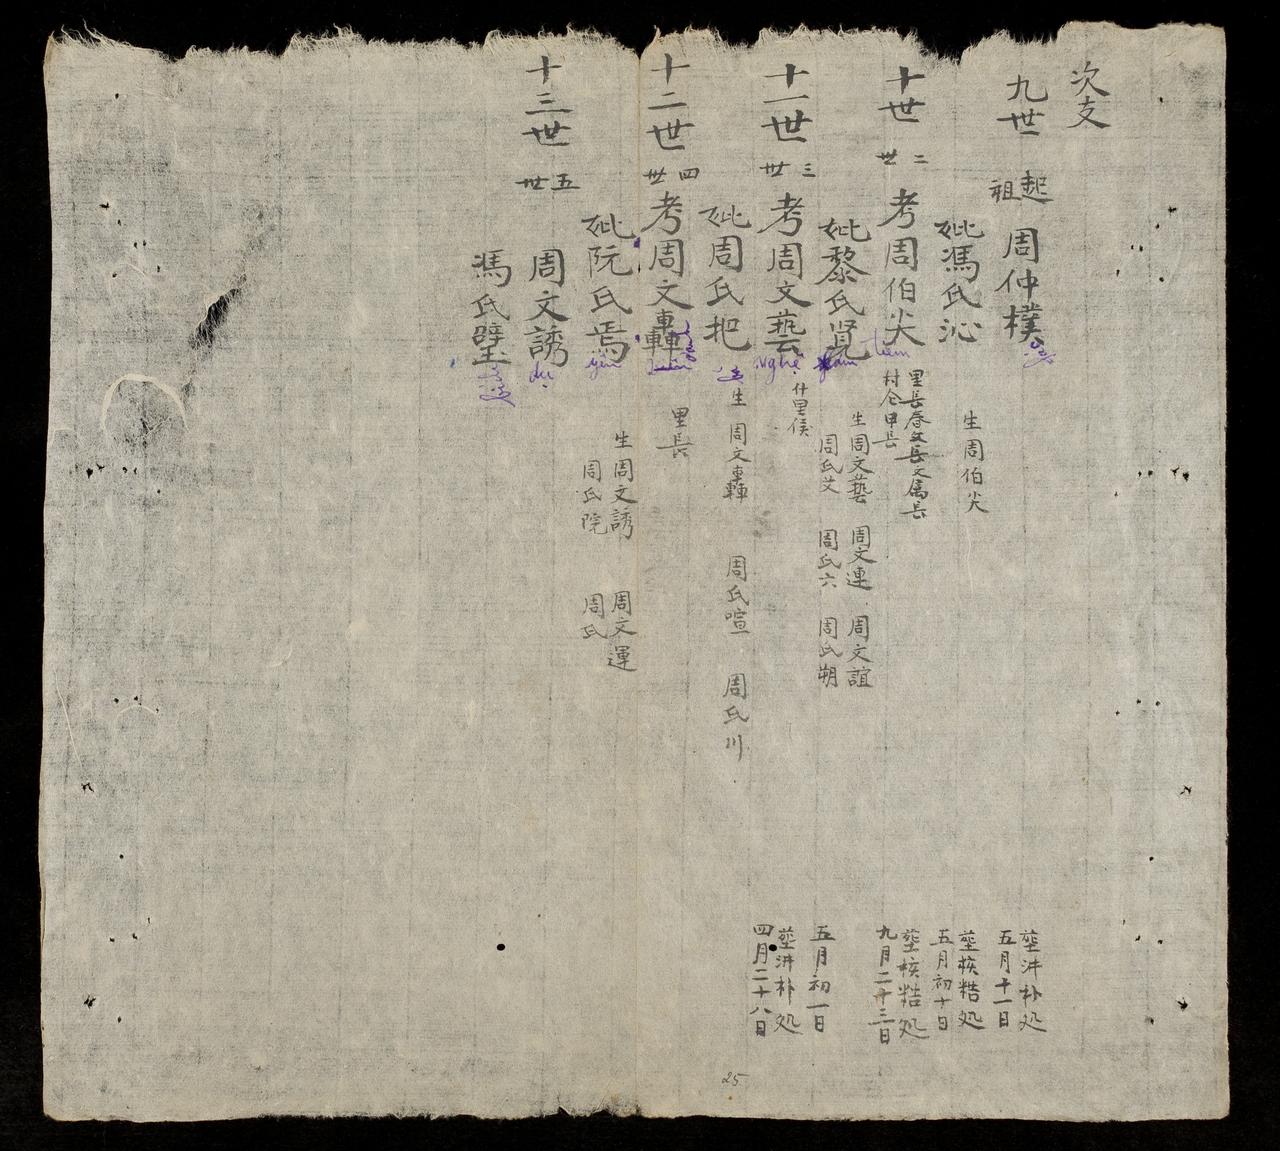 次支
九世 起祖 周仲樸
塟汫朴処
五月十一日
妣馮氏沁 生周伯尖
塟核糙処
五月初十日
十世 二世 考周伯尖 tiêm
里長 文長 文属長
村 甲長
塟核糙処
九月二十三日
妣黎氏覓
生周文藝 周文連 周文誼
周氏艾 周氏六 周氏朔
五月初一日
十一世 三世 考周文藝 Nghệ 什里侯
塟汫朴処
四月二十八日
妣周氏把 生 周文轟 周氏喧 周氏川
十二世 四世 考周文轟 里長
妣阮氏焉 yên
生周文誘 周文運
周氏院 周氏
十三世 五世 周文誘 dụ
馮氏璧
25